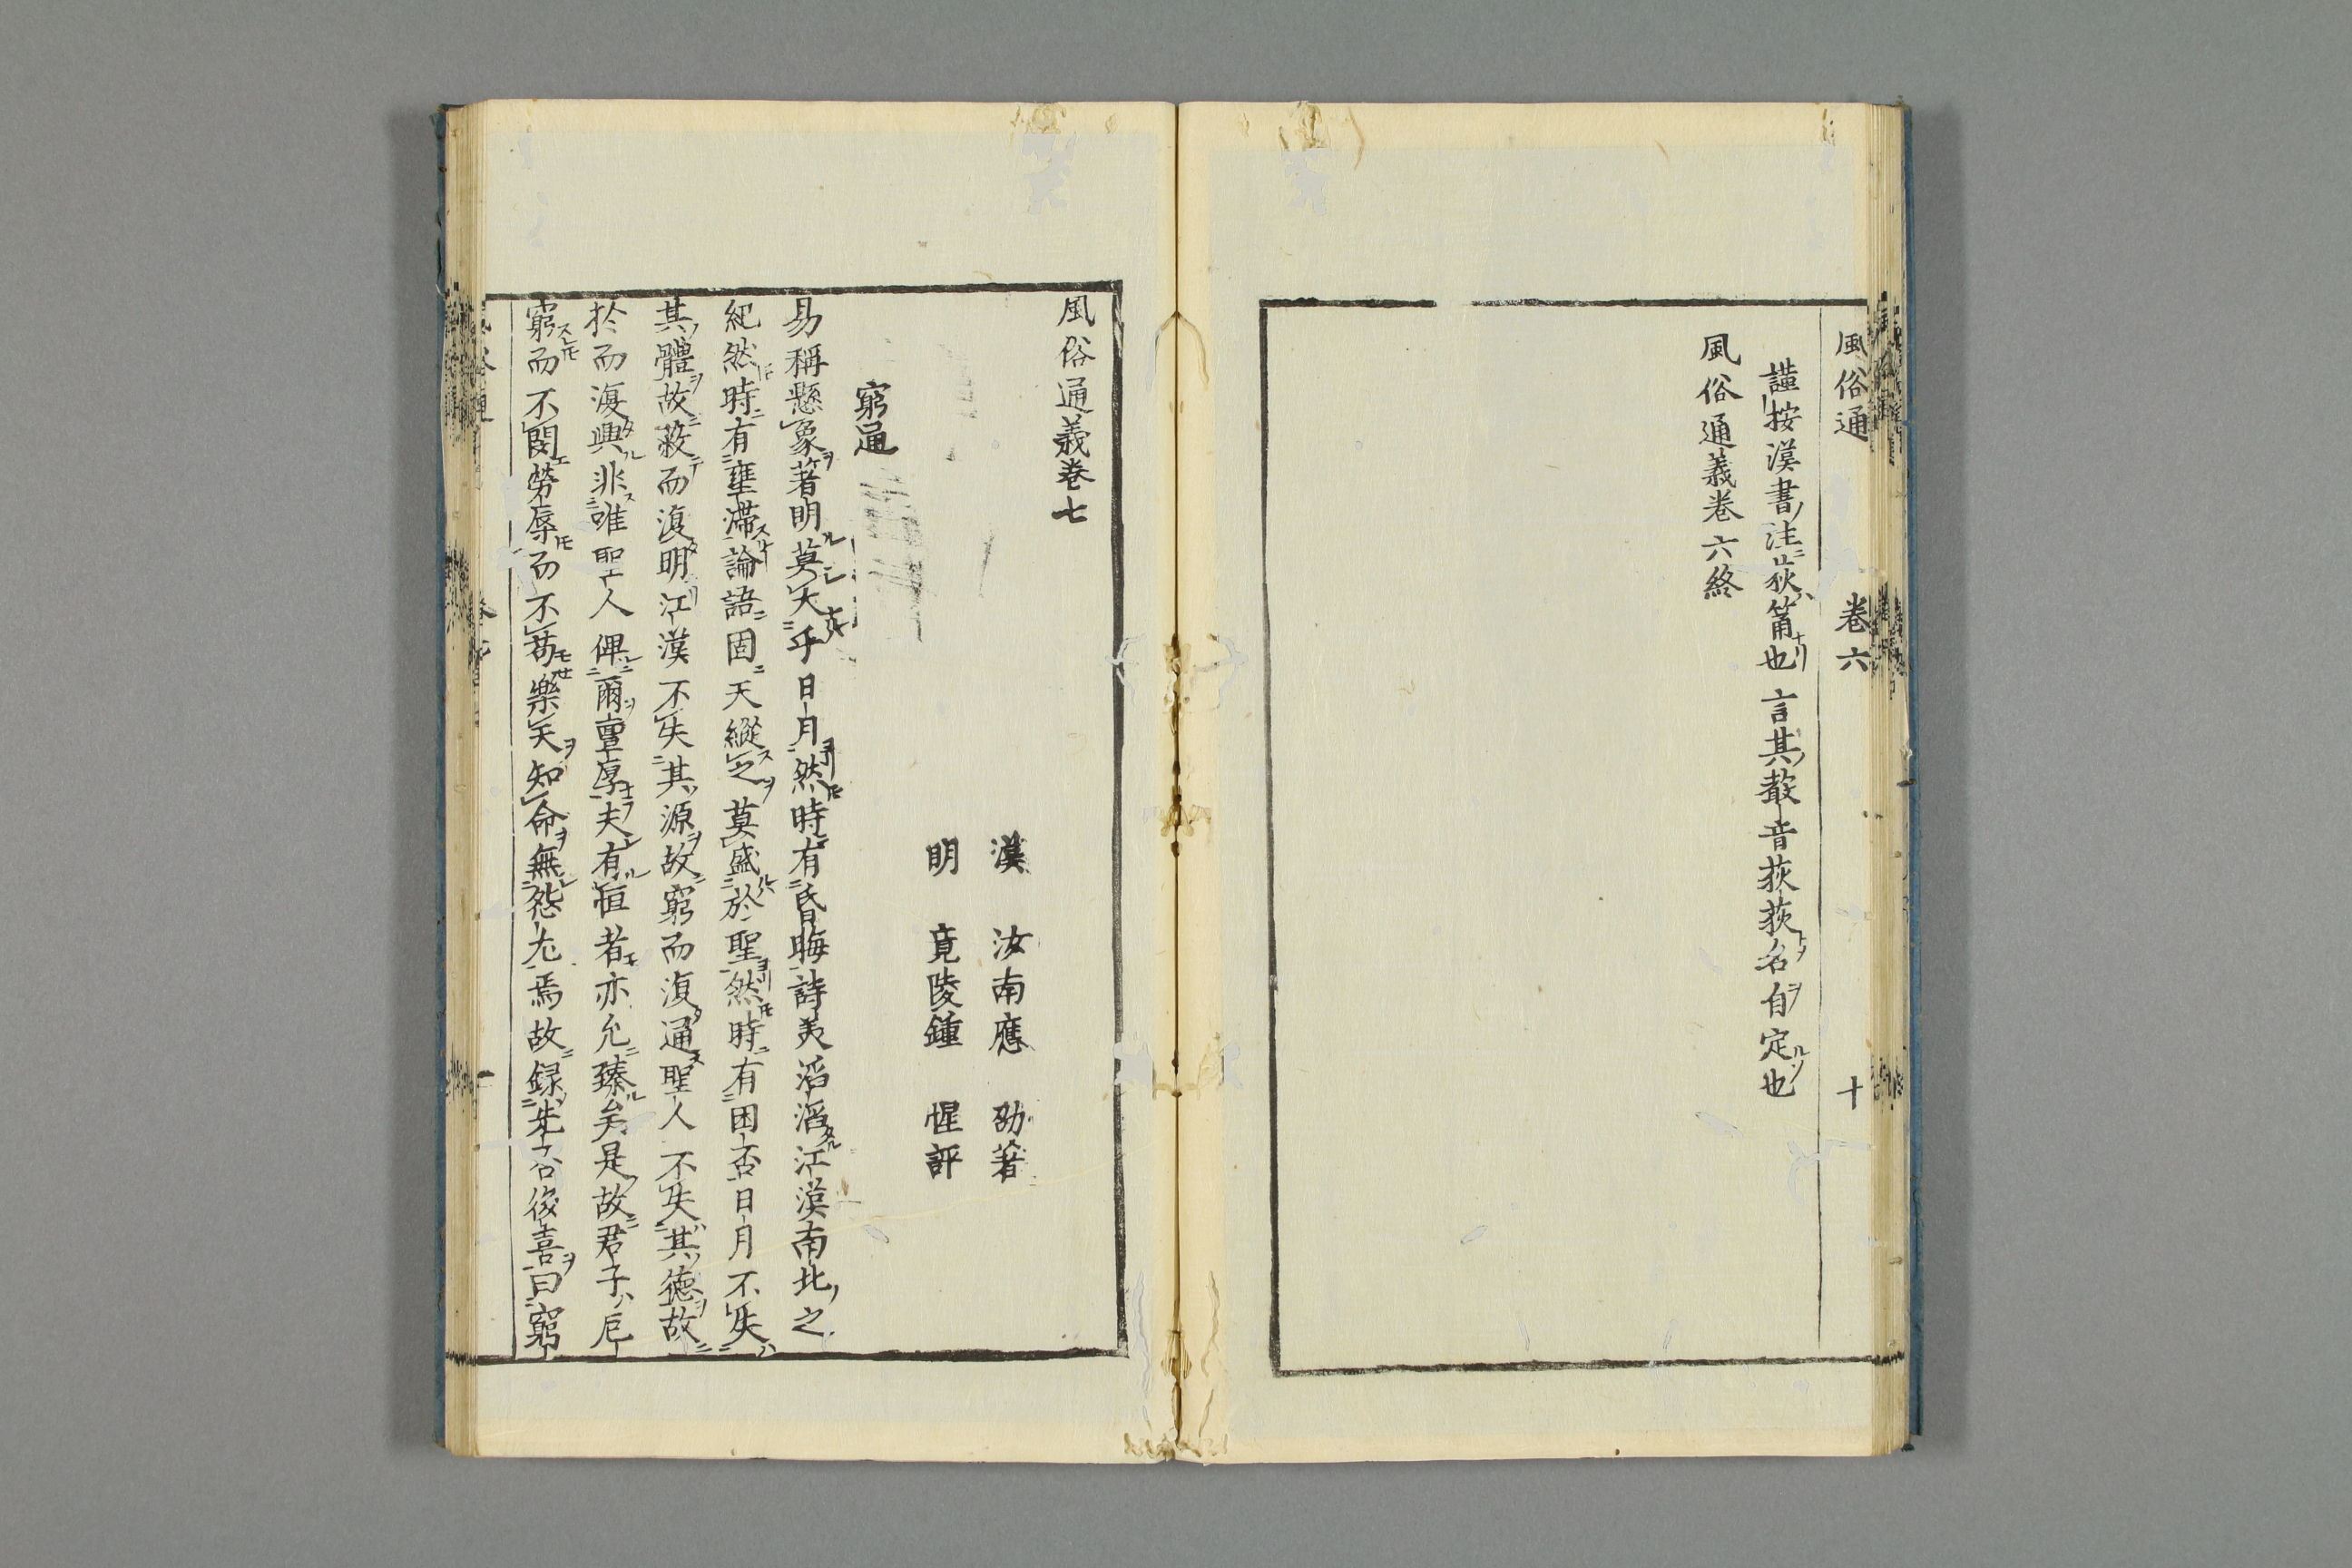 風俗通 卷六 十
謹按漢書注荻筩也言其聲音荻荻名自定也
風俗通義卷六終
風俗通義卷七
漢 汝南應 劭著
明 竟陵鍾 惺評
窮通
易稱懸象著明莫大乎日月然時有昏晦詩美滔滔江漢南北之
紀然時有壅滯論語固天縱之莫盛於聖然時有困否日月不失
其體故蔽而復明江漢不失其源故窮而復通聖人不失其德故
於而復興非唯聖人俾爾亶厚夫有恒者亦允臻矣是故君子厄
窮而不閔勞辱而不苟樂天知命無怨尤焉故録先否後喜曰窮